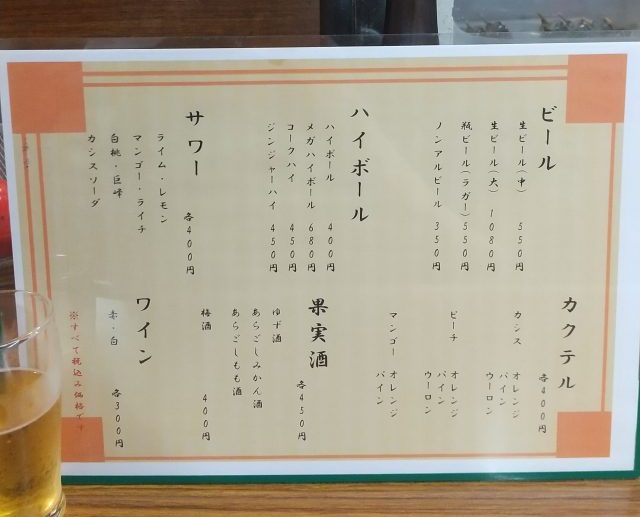 ビール
生ビール(中) 550円
生ビール(大) 1080円
瓶ビール(ラガー) 550円
ノンアルビール 350円
ハイボール
ハイボール 400円
メガハイボール 680円
コークハイ 450円
ジンジャーハイ 450円
サワー
各400円
ライム・レモン
マンゴー・ライチ
白桃・巨峰
カシスソーダ
カクテル
各400円
カシス オレンジ
パイン
ウーロン
ピーチ オレンジ
パイン
ウーロン
マンゴー オレンジ
パイン
果実酒
各450円
ゆず酒
あらごしみかん酒
あらごしもも酒
梅酒 400円
ワイン
赤・白 各300円
※すべて税込み価格です